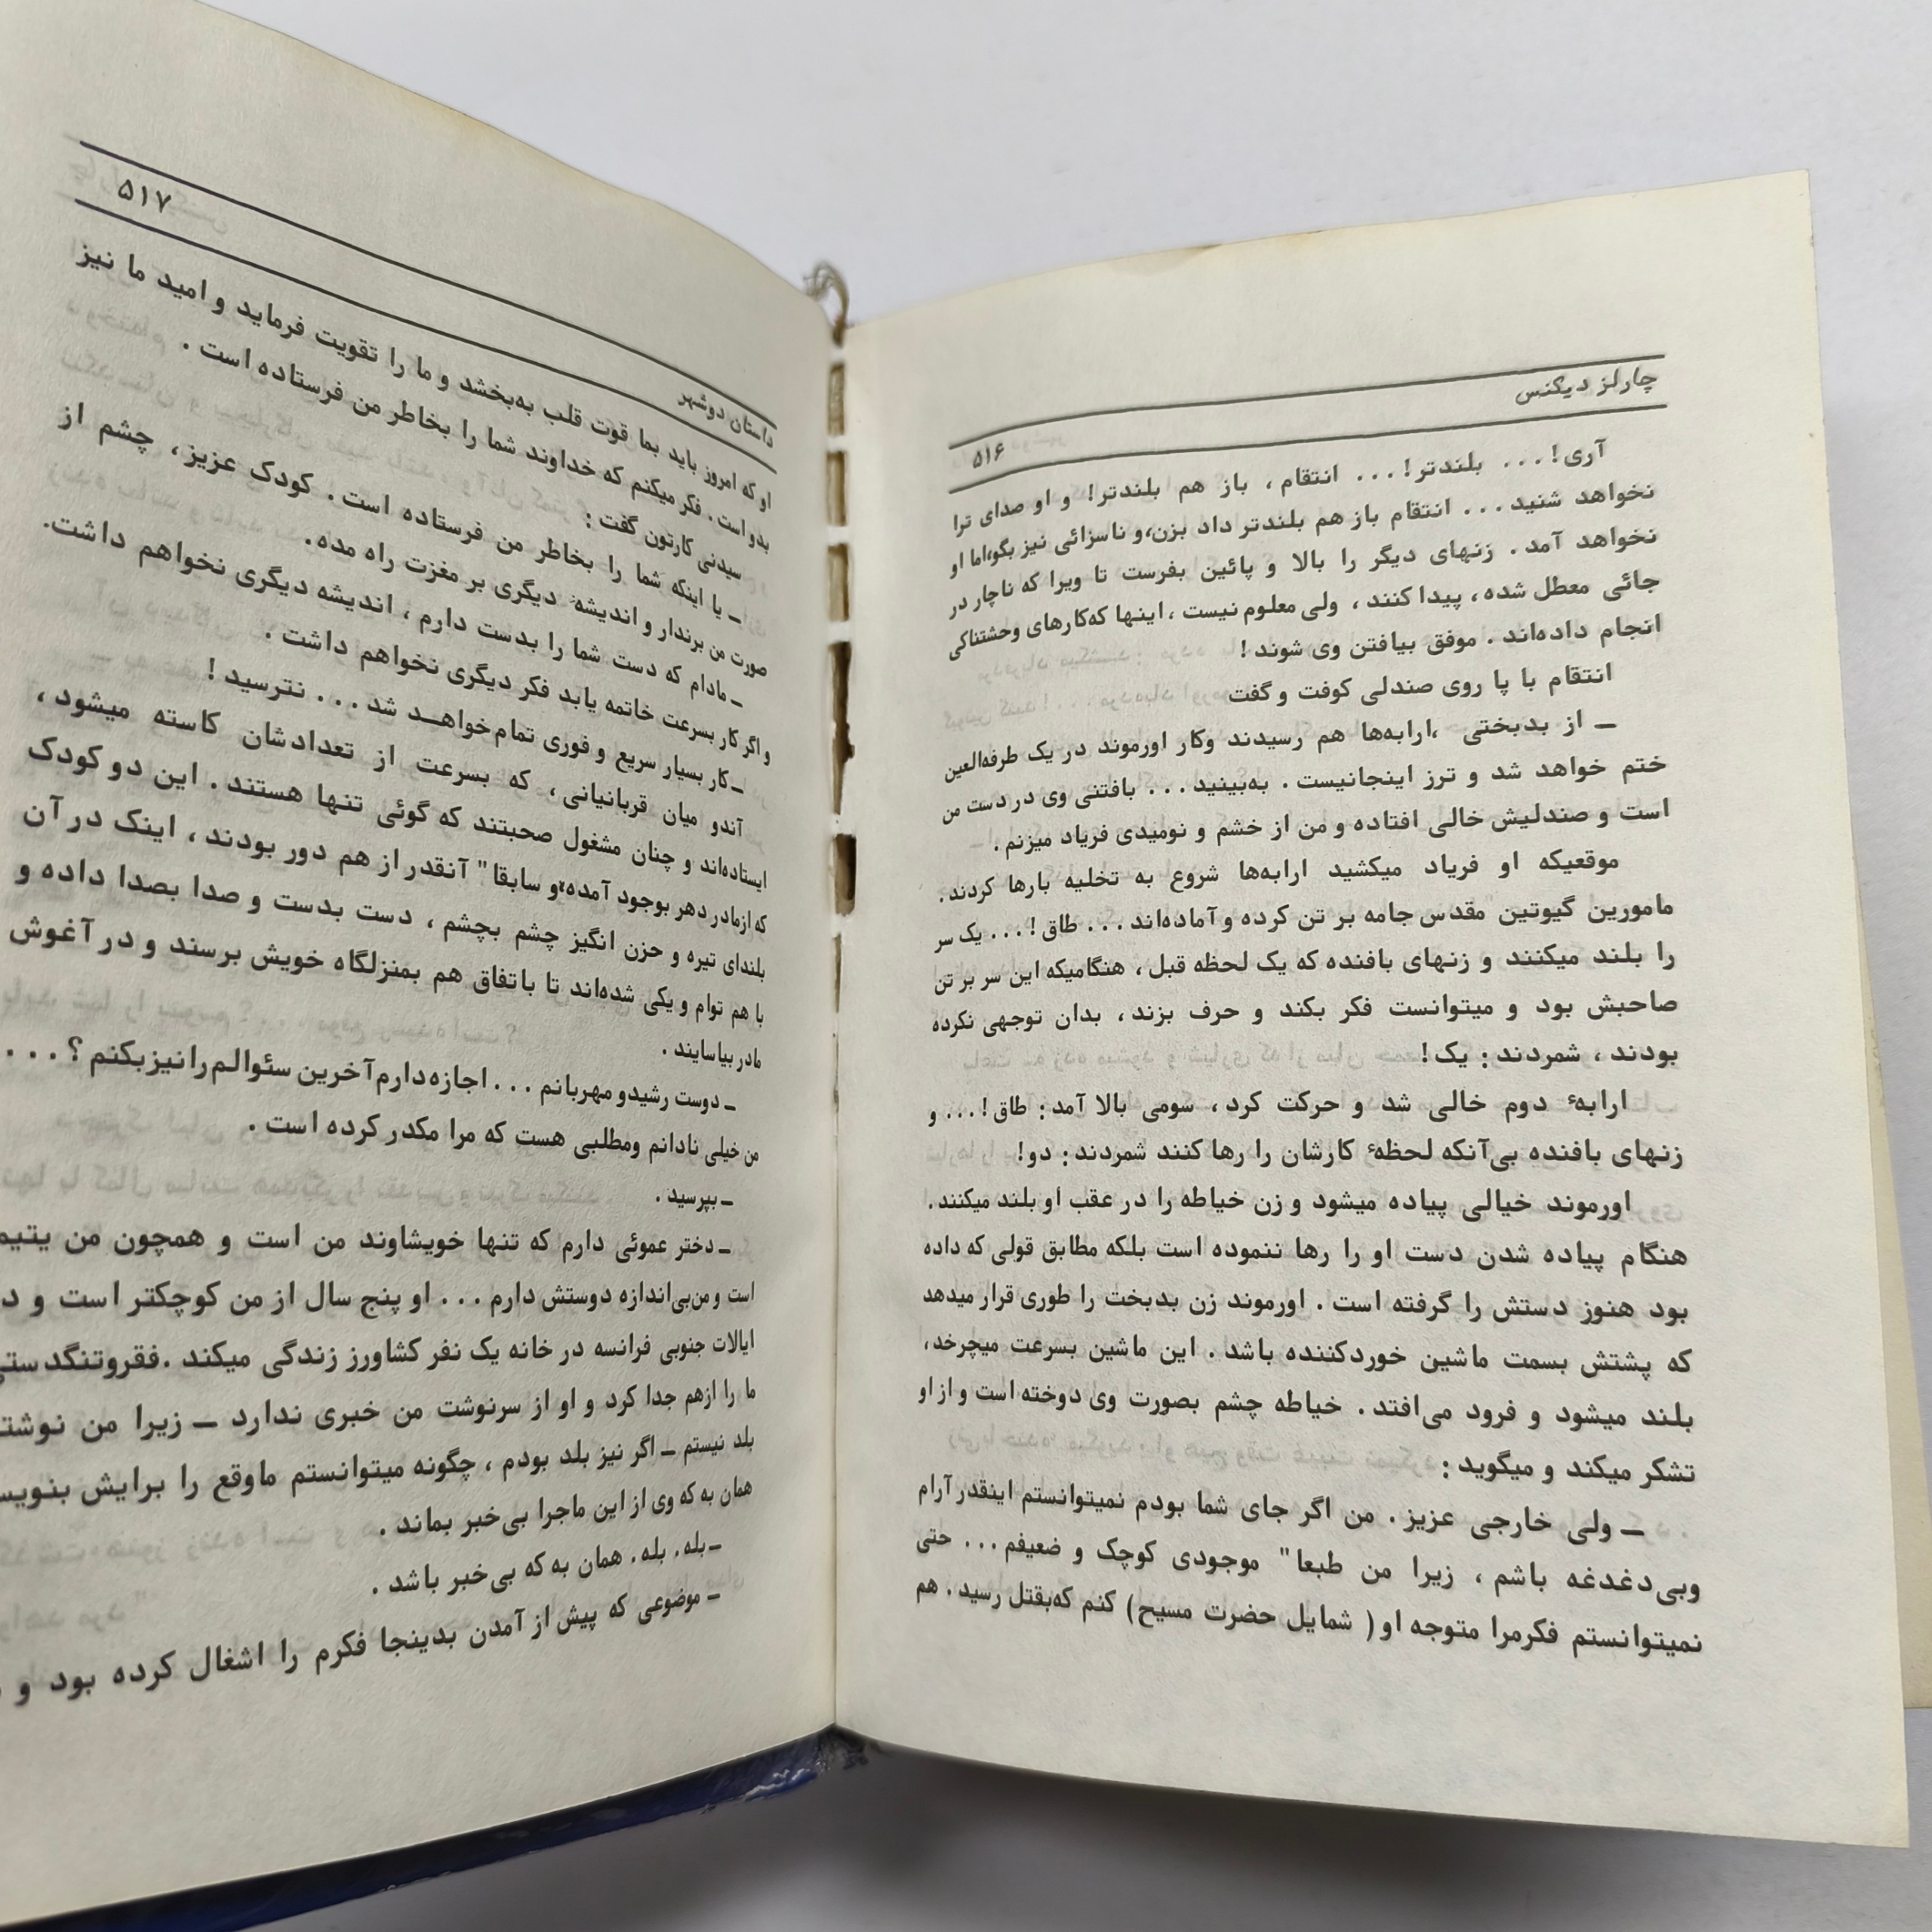 چارلز دیکنس
۵۱۶
آری! . . . بلندتر! . . . انتقام ، باز هم بلندتر! و او صدای ترا
نخواهد شنید . . . انتقام باز هم بلندتر داد بزن،و ناسزائی نیز بگو،اما او
نخواهد آمد . زنهای دیگر را بالا و پائین بفرست تا ویرا که ناچار در
جائی معطل شده ، پیدا کنند ، ولی معلوم نیست ، اینها که‌کارهای وحشتناکی
انجام داده‌اند . موفق بیافتن وی شوند !
انتقام با پا روی صندلی کوفت و گفت
ــ از بدبختی ،ارابه‌ها هم رسیدند وکار اورموند در یک طرفه‌العین
ختم خواهد شد و ترز اینجانیست . به‌بینید . . . بافتنی وی در دست من
است و صندلیش خالی افتاده و من از خشم و نومیدی فریاد میزنم .
موقعیکه او فریاد میکشید ارابه‌ها شروع به تخلیه بارها کردند .
مامورین گیوتین مقدس جامه بر تن کرده و آماده‌اند . . . طاق ! . . . یک سر
را بلند میکنند و زنهای بافنده که یک لحظه قبل ، هنگامیکه این سر بر تن
صاحبش بود و میتوانست فکر بکند و حرف بزند ، بدان توجهی نکرده
بودند ، شمردند : یک !
ارابهٔ دوم خالی شد و حرکت کرد ، سومی بالا آمد : طاق ! . . . و
زنهای بافنده بی‌آنکه لحظهٔ کارشان را رها کنند شمردند : دو!
اورموند خیالی پیاده میشود و زن خیاطه را در عقب او بلند میکنند .
هنگام پیاده شدن دست او را رها ننموده است بلکه مطابق قولی که داده
بود هنوز دستش را گرفته است . اورموند زن بدبخت را طوری قرار میدهد
که پشتش بسمت ماشین خوردکننده باشد . این ماشین بسرعت میچرخد ،
بلند میشود و فرود می‌افتد . خیاطه چشم بصورت وی دوخته است و از او
تشکر میکند و میگوید :
ــ ولی خارجی عزیز . من اگر جای شما بودم نمیتوانستم اینقدر آرام
وبی‌دغدغه باشم ، زیرا من طبعا" موجودی کوچک و ضعیفم . . . حتی
نمیتوانستم فکرمرا متوجه او ( شمایل حضرت مسیح) کنم که‌بقتل رسید . هم
داستان دوشهر
۵۱۷
او که امروز باید بما قوت قلب به‌بخشد و ما را تقویت فرماید و امید ما نیز
بدو است . فکر میکنم که خداوند شما را بخاطر من فرستاده است .
سیدنی کارتون گفت :
ــ یا اینکه شما را بخاطر من فرستاده است . کودک عزیز ، چشم از
صورت من برندار و اندیشهٔ دیگری بر مغزت راه مده.
ــ مادام که دست شما را بدست دارم ، اندیشه دیگری نخواهم داشت.
و اگر کار بسرعت خاتمه یابد فکر دیگری نخواهم داشت .
ــ کار بسیار سریع و فوری تمام خواهــد شد . . . نترسید !
آندو میان قربانیانی ، که بسرعت از تعدادشان کاسته میشود ،
ایستاده‌اند و چنان مشغول صحبتند که گوئی تنها هستند . این دو کودک
که ازمادر دهر بوجود آمده و سابقا" آنقدر از هم دور بودند ، اینک در آن
بلندای تیره و حزن انگیز چشم بچشم ، دست بدست و صدا بصدا داده و
با هم توام و یکی شده‌اند تا باتفاق هم بمنزلگاه خویش برسند و در آغوش
مادر بیاسایند .
ــ دوست رشیدو مهربانم . . . اجازه‌دارم‌آخرین سئوالم‌رانیزبکنم ؟ . . .
من خیلی نادانم ومطلبی هست که مرا مکدر کرده است .
ــ بپرسید .
ــ دختر عموئی دارم که تنها خویشاوند من است و همچون من یتیم
است و من‌بی‌اندازه دوستش دارم . . . او پنج سال از من کوچکتر است و
ایالات جنوبی فرانسه در خانه یک نفر کشاورز زندگی میکند .
ما را ازهم جدا کرد و او از سرنوشت من خبری ندارد ــ زیرا من
بلد نیستم ــ اگر نیز بلد بودم ، چگونه میتوانستم ماوقع را برایش
همان به که وی از این ماجرا بی‌خبر بماند .
ــ بله. بله. همان به که بی‌خبر باشد .
ــ موضوعی که پیش از آمدن بدینجا فکرم را اشغال کرده بود و